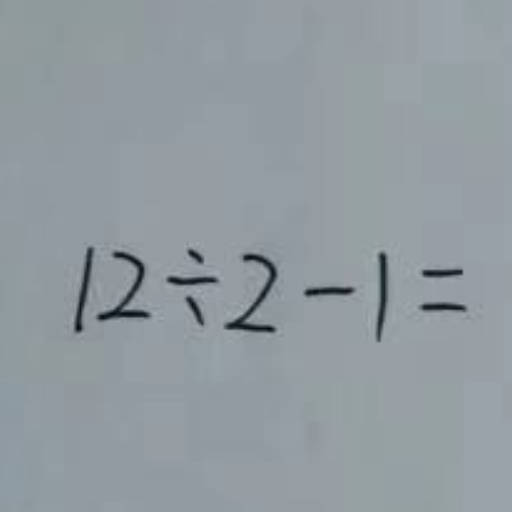 12÷2-1=